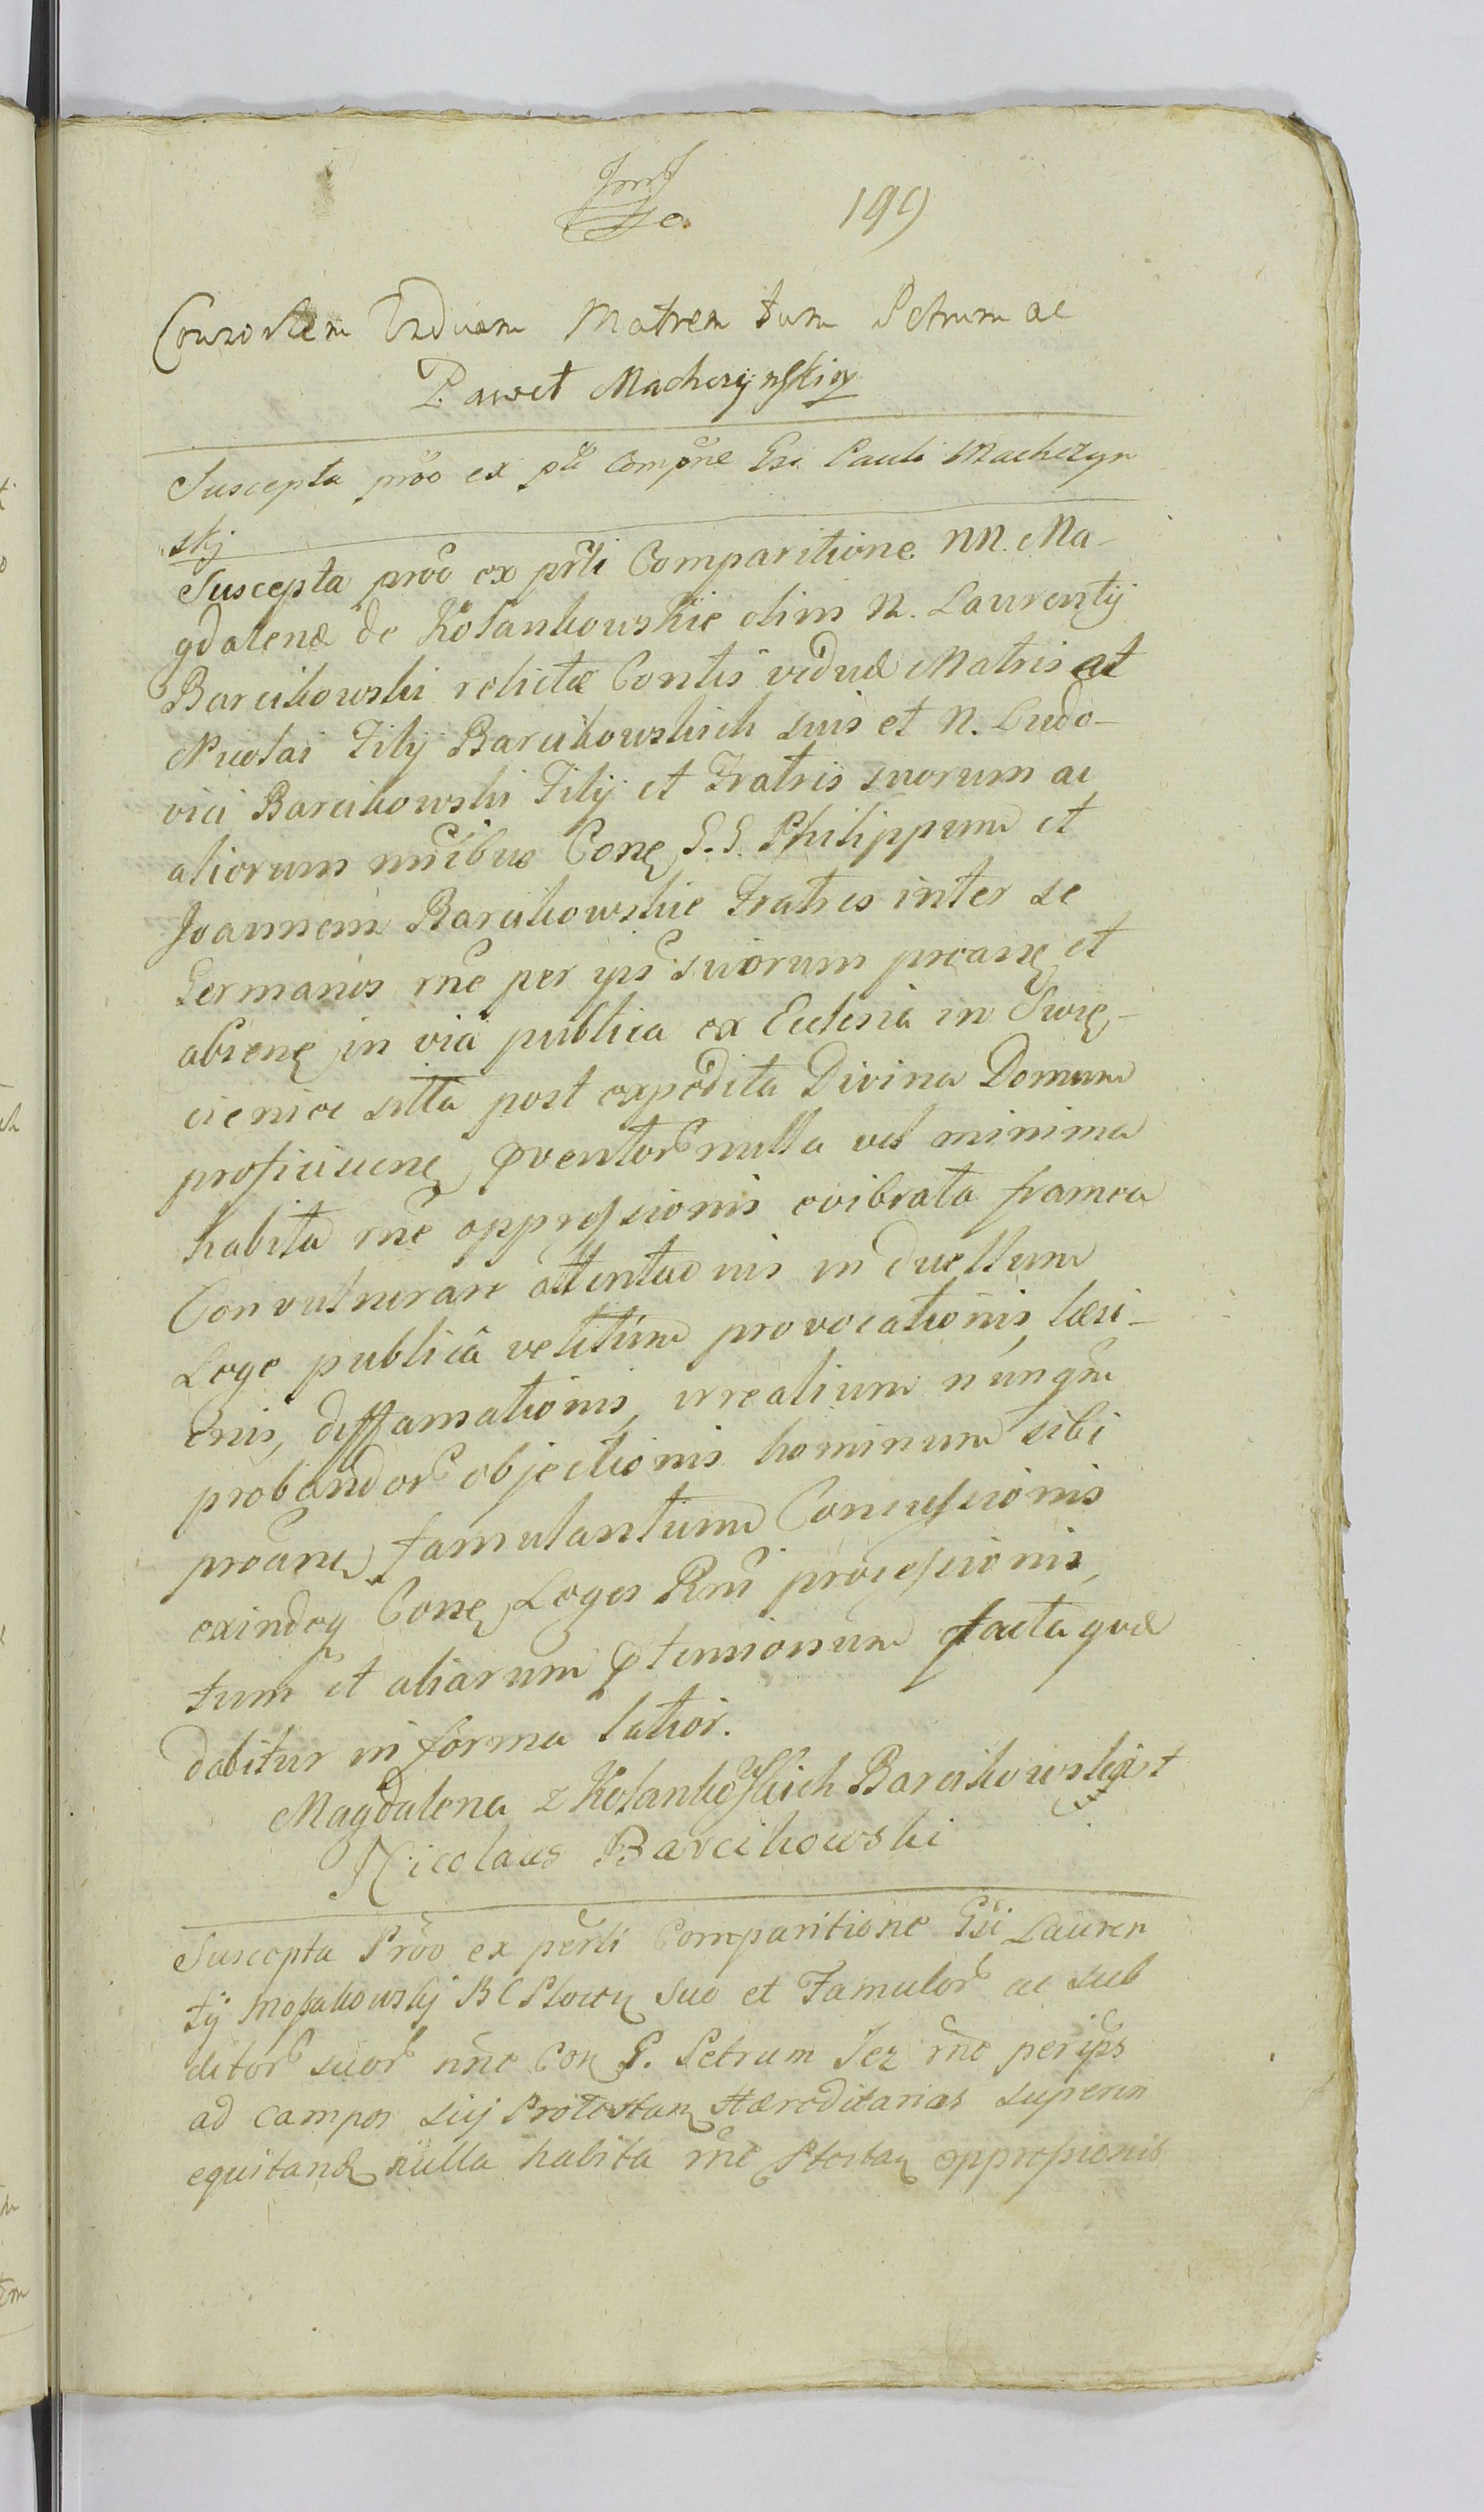 199
Consortem Viduam Matrem tum Petrum ac
Paweł Machczynski
Suscepta prōo ex pti Compne Gsi Pauli Machczyn
skj
Suscepta prōo ex prti Comparitione NN. Ma-
gdalenæ de Kołankowskie olim N. Laurentij
Barcikowski relictæ Contis viduæ Matris at
Nicolai Filij Barcikowskich suis et N. Ludo-
vici Barcikowski Filij et Fratris suorum ac
aliorum nnibus Cone G.G. Philippum et
Joannem Barcikowskie Fratres inter se
Germanos rne per ips suorum proane et
absene in via publica ex Ecclesia in Swię-
cienice sitta post expedita Divina Domum
proficiscene ꝓventor nulla vel minima
habita rne oppressionis evibrata framea
Convulnerare attentae nis in duellum
Lege publicâ vetitum provocationis, læsi-
onis, diffamationis, irrealium nunqm
probandor objectionis hominum sibi
proane famulantium Concussionis
exindeq Cone Leges Rni processionis,
tum et aliarum ꝓtensionum facta quæ
dabitur in forma latior.
Magdalena z Kołankoskich Barcikowska +
Nicolaus Barcikowski
Suscepta Prōo ex perti Comparitione Gsi Lauren
tij Mosakowskj BC Plocen suo et Famulor ac sub
ditor suor nne Con G. Petrum Jez rne per ips
ad campos sui Protestan Hæreditarias superin
equitand nulla habita rne Ptestan oppressionis